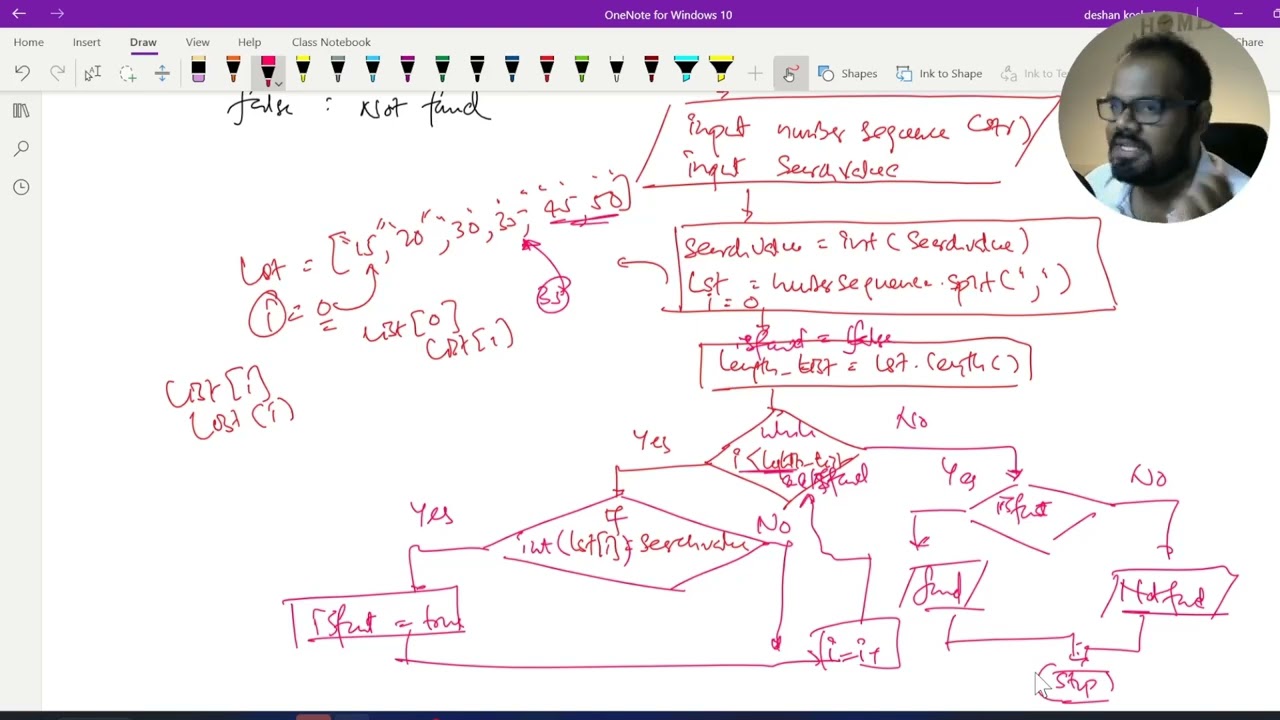 OneNote for Windows 10
Home
Insert
Draw
View
Help
Class Notebook
Shapes
Ink to Shape
Share
false : Not found
input number sequence (str)
input Searchvalue
Lst = ["15", "20", 30, 35, 45, 50]
35
i = 0
List[0]
List[i]
List[i]
List(i)
Searchvalue = int (Searchvalue)
Lst = numbersequence.split(',')
i = 0
isfound = false
length_list = lst.length()
while
i < length_list
Yes
No
Yes
if
int (lst[i]) = Searchvalue
No
isfound = true
i = i+
Yes
isfound
No
found
Not found
Stop